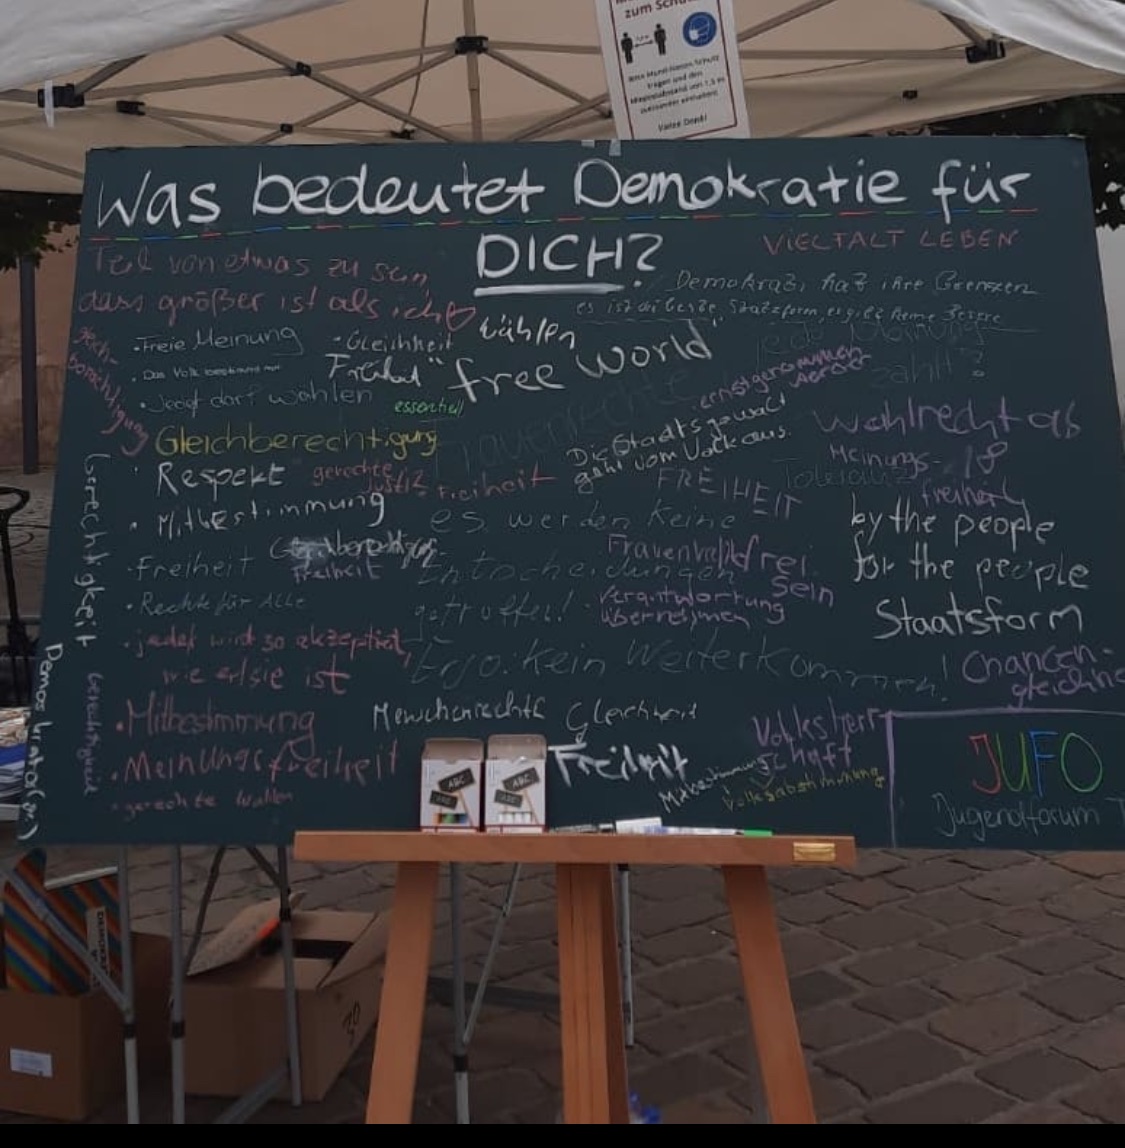 zum Schutz
Bitte Mund-Nasen-Schutz
tragen und den
Mindestabstand von 1,5 m
zueinander einhalten!
Vielen Dank!
Was bedeutet Demokratie für
DICH?
VIELTALT LEBEN
Teil von etwas zu sein,
dass größer ist als ich
Demokrati hat ihre Grenzen
es ist die beste Staatzform, es gibt keine
wählen
Freie Meinung
Gleichheit
"free world"
Freiheit
Das Volk bestimmt mit
Jeder darf wählen
essentiell
jede Meinung
zählt?
ernstgenommen
werden
Gleichberechtigung
Frauenrechte
Die Staatsgewalt
geht vom Volk aus.
Wahlrecht ab
18
Meinungs-
freiheit
Respekt
gerechte
Justiz
Freiheit
FREIHEIT
Toleranz
Mitbestimmung
es werden keine
Entscheidungen
getroffen!
Ergo: Kein Weiterkommen!
by the people
for the people
Staatsform
Freiheit
Freiheit
frei
sein
Verantwortung
übernehmen
Rechte für Alle
jeder wird so akzeptiert,
wie er/sie ist
Gerechtigkeit
Gerechtigkeit
Chancen-
Mitbestimmung
Menschenrechte
Gleichheit
Volksherr-
schaft
Meinungsfreiheit
Freiheit
Mitbestimmung
Volksabstimmung
gerechte Wahlen
JUFO
Jugendforum
ABC
ABC